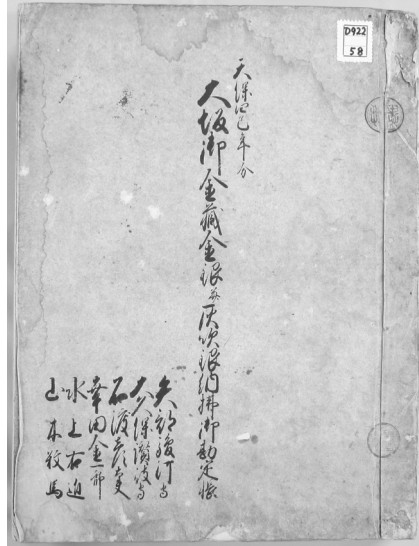 D922
58
天保四巳年分
大坂御金蔵金銀并灰吹銀納拂御勘定帳
矢部駿河守
大久保讃岐守
石渡彦太夫
幸田金一郎
水上右近
山本数馬